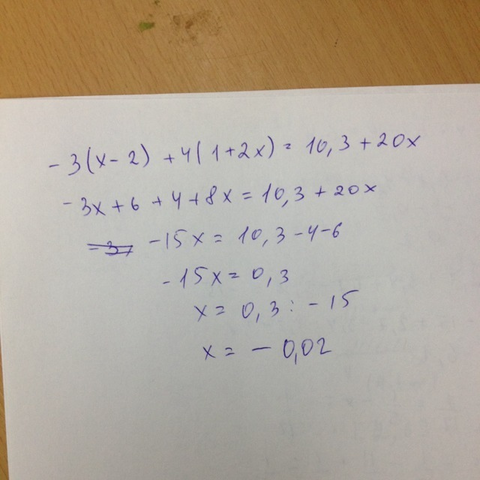 -3(x-2) +4(1+2x)= 10,3+20x
-3x+6 +4+8x=10,3+20x
-15x= 10,3-4-6
-15x=0,3
x= 0,3: -15
x= -0,02